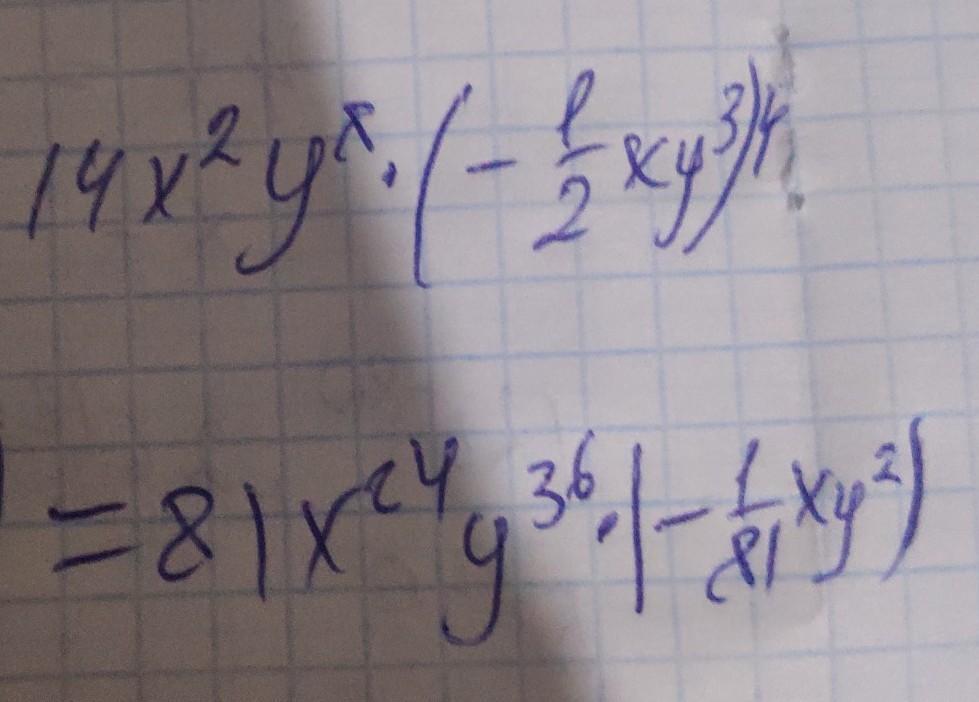 14x²y⁸·(-1/2xy³)⁴
=81x²⁴y³⁶·(-1/81xy²)